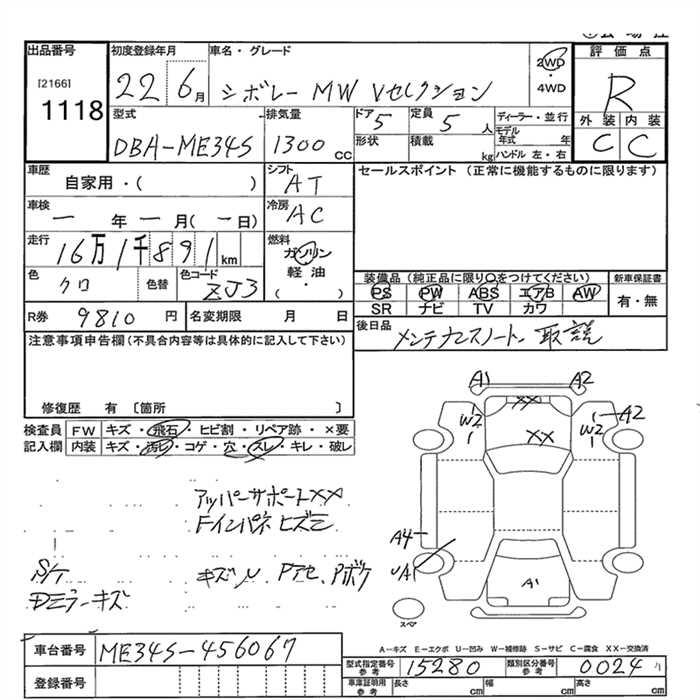 出品番号
[2166]
1118
初度登録年月
22 6月
車名・グレード
シボレー MW Vセレクション
2WD
・
4WD
評価点
R
外装 内装
C C
型式
DBA-ME34S
排気量
1300 cc
ドア
5
形状
定員
5 人
積載
kg
ディーラー・並行
モデル
年式 年
ハンドル 左・右
車歴
自家用・( )
シフト
AT
セールスポイント (正常に機能するものに限ります)
車検
一 年 一 月 (一 日)
冷房
AC
走行
16万1千891 km
燃料
ガソリン
軽油
・
( )
色
クロ
色替
色コード
ZJ3
装備品 (純正品に限り○をつけてください)
PS PW ABS エアB AW
SR ナビ TV カワ
新車保証書
有・無
R券 9810 円
名変期限 月 日
後日品
メンテナンスノート、取説
注意事項申告欄(不具合内容等は具体的に記入して下さい)
修復歴 有 [箇所 ]
検査員
記入欄
FW キズ・飛石・ヒビ割・リペア跡・×要
内装 キズ・汚れ・コゲ・穴・スレ・キレ・破し
アッパーサポートXX
Fインパネ ヒズミ
キズU Pアセ、Pボケ
S/T
Dミラーキズ
A1 A2
XX
W2 W2 A2
XX
A4
UA1
A1
スペア
A-キズ E-エクボ U-凹み W-補修跡 S-サビ C-腐食 XX-交換済
車台番号 ME34S-456067
登録番号
型式指定番号
参考
15280
類別区分番号
参考
0024
車庫証明用
参考
長さ cm
幅 cm
高さ cm